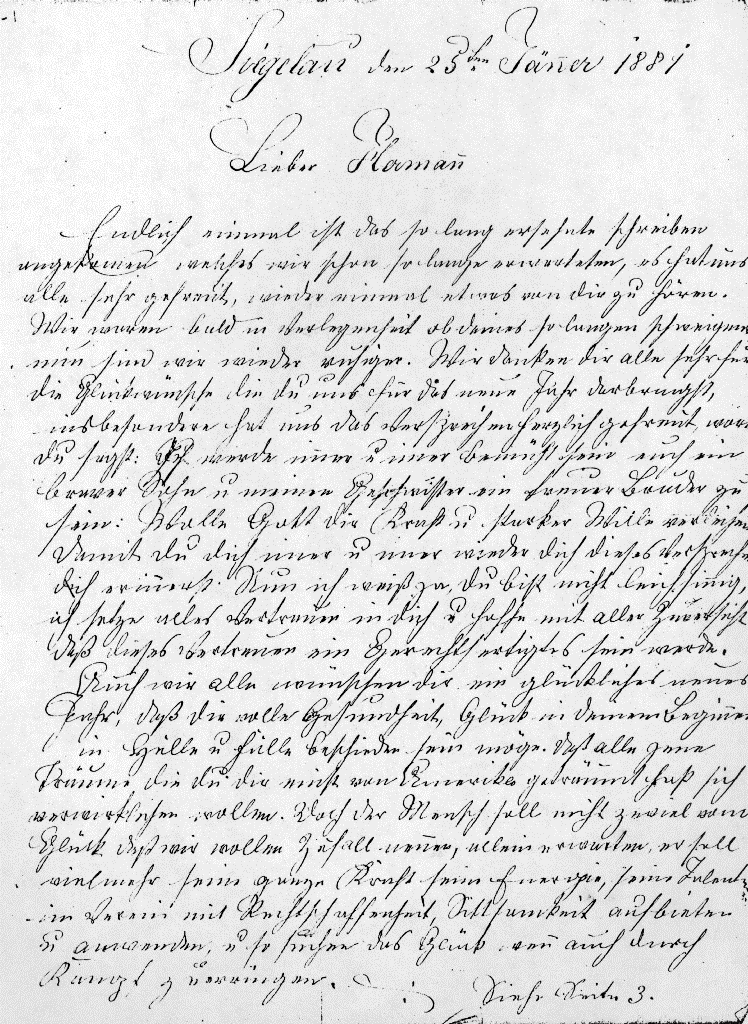 Siegelau den 25ten Jäñer 1881
Lieber Flamañ
Endlich einmal ist das so lang ersehnte schreiben
angekom̄en welches wir schon so lange erwarteten, es hat uns
alle sehr gefreut, wieder einmal etwas von dir zu hören.
Wir waren bald in Verlegenheit ob deines so langen schweigens
nun sind wir wieder ruhiger. Wir danken dir alle sehr für
die Glückwünsche die du uns für das neue Jahr darbringst,
insbesondere hat uns das Versprechen herzlich gefreut, wo
du sagst: Ich werde im̄er u im̄er bemüht sein euch ein
braver Sohn u meinen Geschwister ein treuer Bruder zu
sein: Wolle Gott dir Kraft u starker Wille verleihen
damit du dich im̄er u im̄er wieder dich dieses Versprechen
dich eriñerst. Nun ich weiß ja, du bist nicht leichsinnig,
ich setze alles Vertrauen in dich u hoffe mit aller Zuversicht
daß dieses Vertrauen ein Gerechtfertigtes sein werde.
Auch wir alle wünschen dir ein glückliches neues
Jahr, daß dir volle Gesundheit, Glück in deinem Beginnen
in Hülle u Fülle beschieden sein möge. Daß alle jene
Träume, die du dir einst von Amerika geträumt hast sich
verwirklichen wollen. Doch der Mensch soll nicht zuviel vom
Glück, daß wir wollen Zufall nennen, allein erwarten, er soll
vielmehr seine ganze Kraft seine Energie, seine Talente
im Verein mit Rechtschaffenheit, Sittsamkeit aufbieten
u anwenden, u so suchen das Glück weñ auch durch
Kampf zu erringen.
Siehe Seite 3.